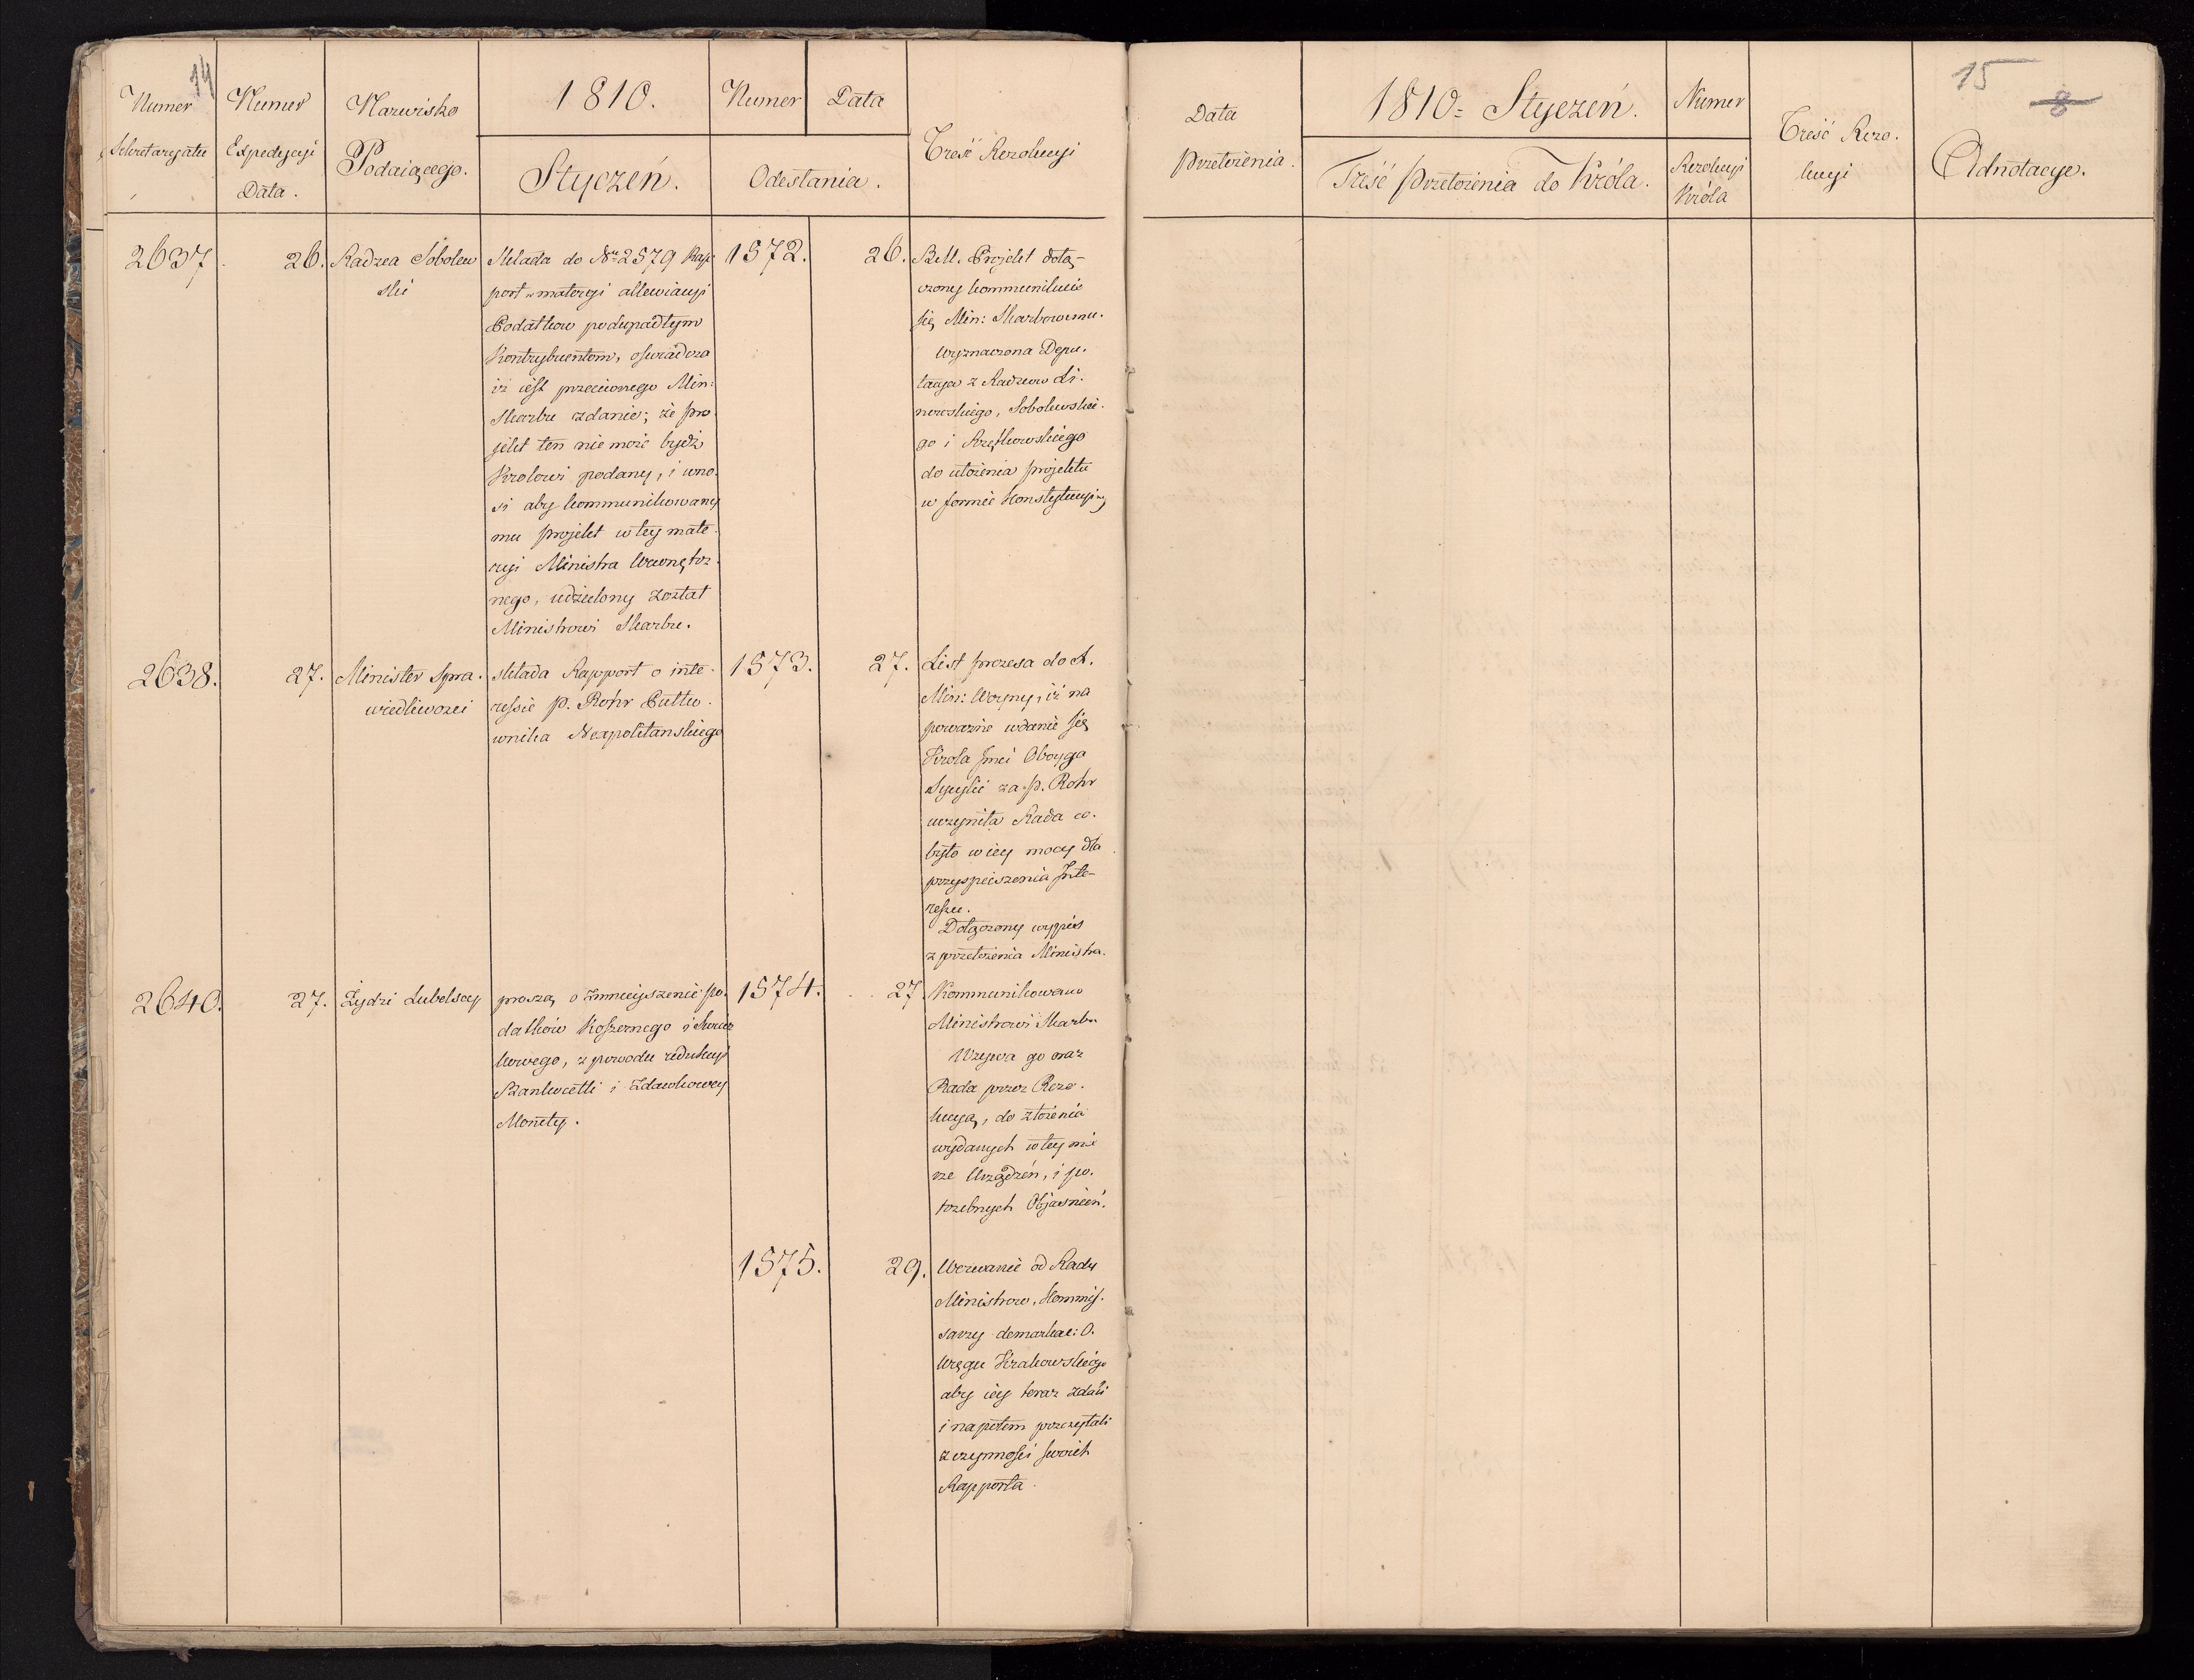 14
Numer
Sekretaryatu
Numer
Expedycyi
Data.
Nazwisko
Podaiącego.
1810.
Styczeń.
Numer
Data
Odesłania.
Treść Rezolucyi
2637
26.
Radzca Sobolew
ski
Składa do Nr 2579 Rap
port w materyi allewiacyi
Podatkow podupadłym
Kontrybuentom, oswiadcza
iż iest przeciwnego Min:
Skarbu zdania; że pro
jekt ten nie może bydź
Krolowi podany, i wno.
si aby kommunikowany
mu projekt w tey mate.
ryi Ministra Wewnętrz.
nego, udzielony został
Ministrowi Skarbu.
1572.
26.
B.M. Projekt dołą-
czony kommunikuie
się Min: Skarbowemu.
Wyznaczona Depu.
tacya z Radzcow Li.
nowskiego, Sobolewskie.
go i
do ułożenia projektu
w formie Konstytucyiney
2638.
27.
Minister Spra.
wiedliwosci
składa Rapport o inte.
ressie p. Rohr Pułko.
wnika Neapolitanskiego
1573.
27.
List prezesa do A.
Min: Woyny, iż na
powazne wdanie się
Krola Jmci Oboyga
Sycylii za p. Rohr
uczyniła Rada co.
było w iey mocy dla
przyspieszenia Inte-
ressu.
Dołączony wypis
z przełożenia Ministra.
2640.
27.
Żydzi Lubelscy
proszą o zmnieyszenie po.
datków Koszernego i Swiecz
kowego, z powodu redukcyi
Bankocetli i zdawkowey
Monety.
1574.
27.
Kommunikowano
Ministrowi Skarbu
Wzywa go oraz
Rada przez Rezo.
lucyą, do złożenia
wydanych w tey mie
rze Urządzeń, i po.
trzebnych Objasnień.
1575.
29.
Wezwanie od Rady
Ministrow, Kommis.
sarzy demarkac: O.
kręgu Krakowskiego
aby iey teraz zdali
i napotem przesyłali
z czynnosci swoich
Rapporta.
15
8
Data
Przełożenia.
1810= Styczeń.
Treść Przełożenia do Króla.
Numer
Rezolucyi
Króla
Treść Rezo.
lucyi
Adnotacye.